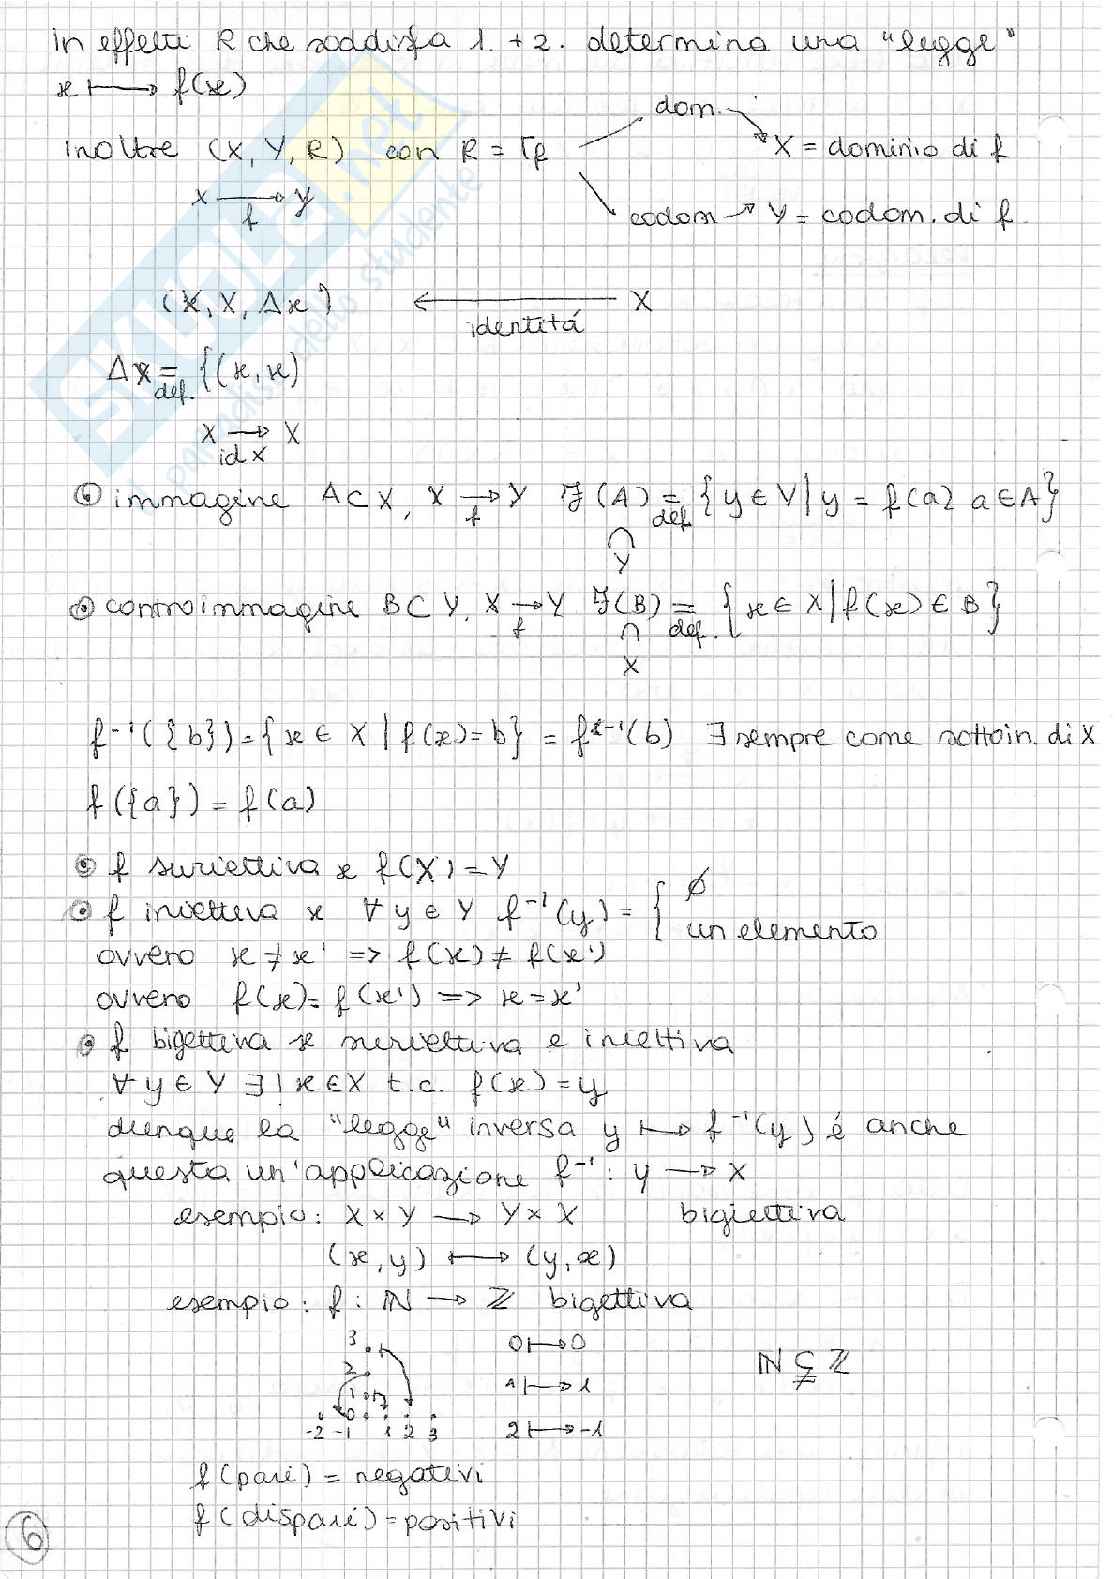 in effetti R che soddisfa 1. + 2. determina una "legge"
x ⟼ f(x)
inoltre (X, Y, R) con R = Γf
dom. → X = dominio di f
X → Y
f
codom → Y = codom. di f
(X, X, Δx) ← X
identitá
Δx = {(x, x)
def.
X → X
id x
immagine A ⊂ X, X → Y f(A) = {y ∈ Y | y = f(a) a ∈ A}
f def
∩
Y
controimmagine B ⊂ Y, X → Y f(B) = {x ∈ X | f(x) ∈ B}
f def.
∩
X
f⁻¹({b}) = {x ∈ X | f(x) = b} = f⁻¹(b) ∃ sempre come sottoin. di X
f({a}) = f(a)
f suriettiva se f(X) = Y
f iniettiva se ∀ y ∈ Y f⁻¹(y) = { ∅
un elemento
ovvero x ≠ x' => f(x) ≠ f(x')
ovvero f(x) = f(x') => x = x'
f bigettiva se suriettiva e iniettiva
∀ y ∈ Y ∃! x ∈ X t.c. f(x) = y
dunque la "legge" inversa y ⟼ f⁻¹(y) é anche
questa un'applicazione f⁻¹: Y → X
esempio: X × Y → Y × X bigiettiva
(x, y) ⟼ (y, x)
esempio: f: ℕ → ℤ bigettiva
3 0 ⟼ 0
2 ℕ ⊊ ℤ
1 1 ⟼ 1
0
-2 -1 1 2 3 2 ⟼ -1
f(pari) = negativi
f(dispari) = positivi
6
SKUOLA.net
il paradiso dello studente